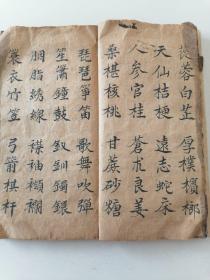 蓉白芷 厚樸檳榔
天仙桔梗 遠志蛇床
人參官桂 蒼朮良姜
桑椹核桃 甘蔗砂糖
琵琶箏笛 歌舞吹彈
笙簫鐘鼓 釵釧鐲
胭脂綉線 袖
衣竹笠 弓箭棋杆